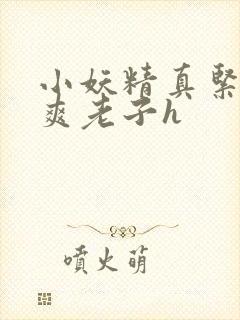 小妖精真緊
爽老子h
噴火萌